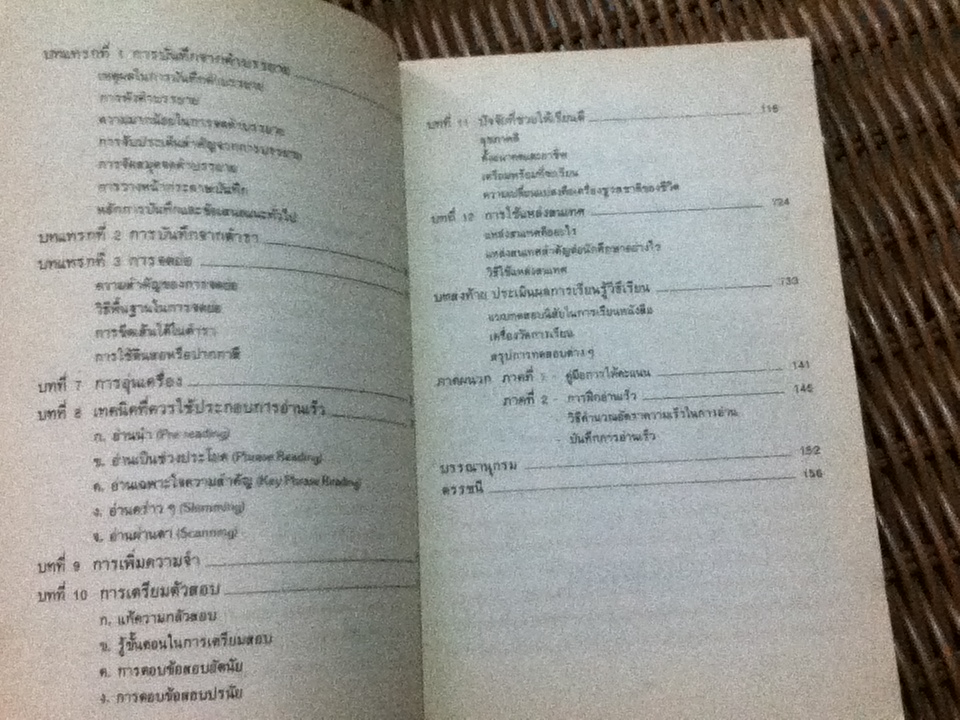 บทแทรกที่ 1 การบันทึกจากคำบรรยาย
เหตุผลในการบันทึกคำบรรยาย
การฟังคำบรรยาย
ความมากน้อยในการจดคำบรรยาย
การจับประเด็นสำคัญจากการบรรยาย
การจัดสมุดจดคำบรรยาย
การวางหน้ากระดาษบันทึก
หลักการบันทึกและข้อเสนอแนะทั่วไป
บทแทรกที่ 2 การบันทึกจากตำรา
บทแทรกที่ 3 การจดย่อ
ความสำคัญของการจดย่อ
วิธีพื้นฐานในการจดย่อ
การขีดเส้นใต้ในตำรา
การใช้ดินสอหรือปากกาสี
บทที่ 7 การอุ่นเครื่อง
บทที่ 8 เทคนิคที่ควรใช้ประกอบการอ่านเร็ว
ก. อ่านนำ (Pre-reading)
ข. อ่านเป็นช่วงประโยค (Phrase Reading)
ค. อ่านเฉพาะใจความสำคัญ (Key Phrase Reading)
ง. อ่านคร่าว ๆ (Skimming)
จ. อ่านผ่านตา (Scanning)
บทที่ 9 การเพิ่มความจำ
บทที่ 10 การเตรียมตัวสอบ
ก. แก้ความกลัวสอบ
ข. รู้ขั้นตอนในการเตรียมสอบ
ค. การตอบข้อสอบอัตนัย
ง. การตอบข้อสอบปรนัย
บทที่ 11 ปัจจัยที่ช่วยให้เรียนดี 116
สุขภาพดี
ตั้งอนาคตและอาชีพ
เตรียมพร้อมที่จะเรียน
ความเปลี่ยนแปลงคือเครื่องชูรสชาติของชีวิต
บทที่ 12 การใช้แหล่งสนเทศ 124
แหล่งสนเทศคืออะไร
แหล่งสนเทศสำคัญต่อนักศึกษาอย่างไร
วิธีใช้แหล่งสนเทศ
บทส่งท้าย ประเมินผลการเรียนรู้วิธีเรียน 133
แบบทดสอบนิสัยในการเรียนหนังสือ
เครื่องวัดการเรียน
สรุปการทดสอบต่าง ๆ
ภาคผนวก ภาคที่ 1 - คู่มือการให้คะแนน 141
ภาคที่ 2 - การฝึกอ่านเร็ว 145
- วิธีคำนวณอัตราความเร็วในการอ่าน
- บันทึกการอ่านเร็ว
บรรณานุกรม 152
ดรรชนี 156